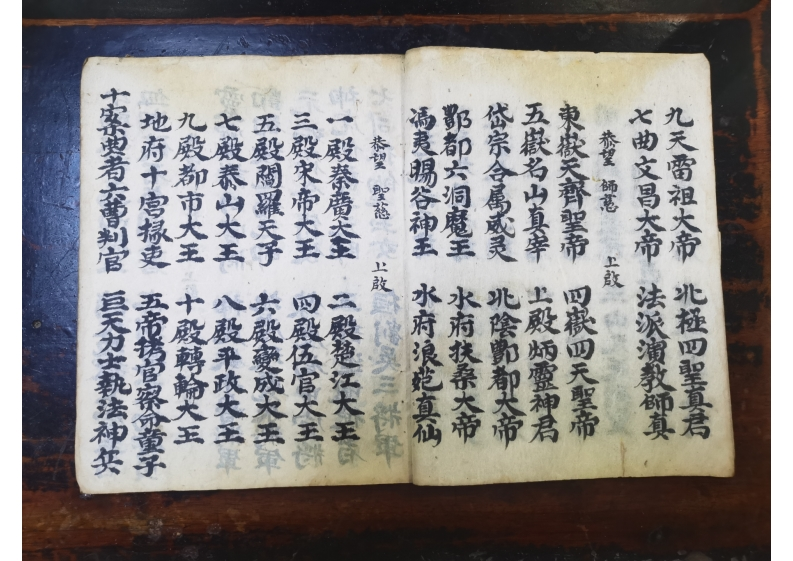 九天雷祖大帝 北極四聖真君
七曲文昌大帝 法派演教師真
恭望 師慈 上啟
東嶽天齊聖帝 四嶽四天聖帝
五嶽名山真宰 上殿炳靈神君
岱宗合属威灵 北陰酆都大帝
酆都六洞魔王 水府扶桑大帝
馮夷賜谷神王 水府浪苑真仙
恭望 聖慈 上啟
一殿秦廣大王 二殿楚江大王
三殿宋帝大王 四殿伍官大王
五殿閻羅天子 六殿變成大王
七殿泰山大王 八殿平政大王
九殿都市大王 十殿轉輪大王
地府十宮掾吏 五帝拷官察命童子
十案典者六曹判官 巨天力士執法神兵